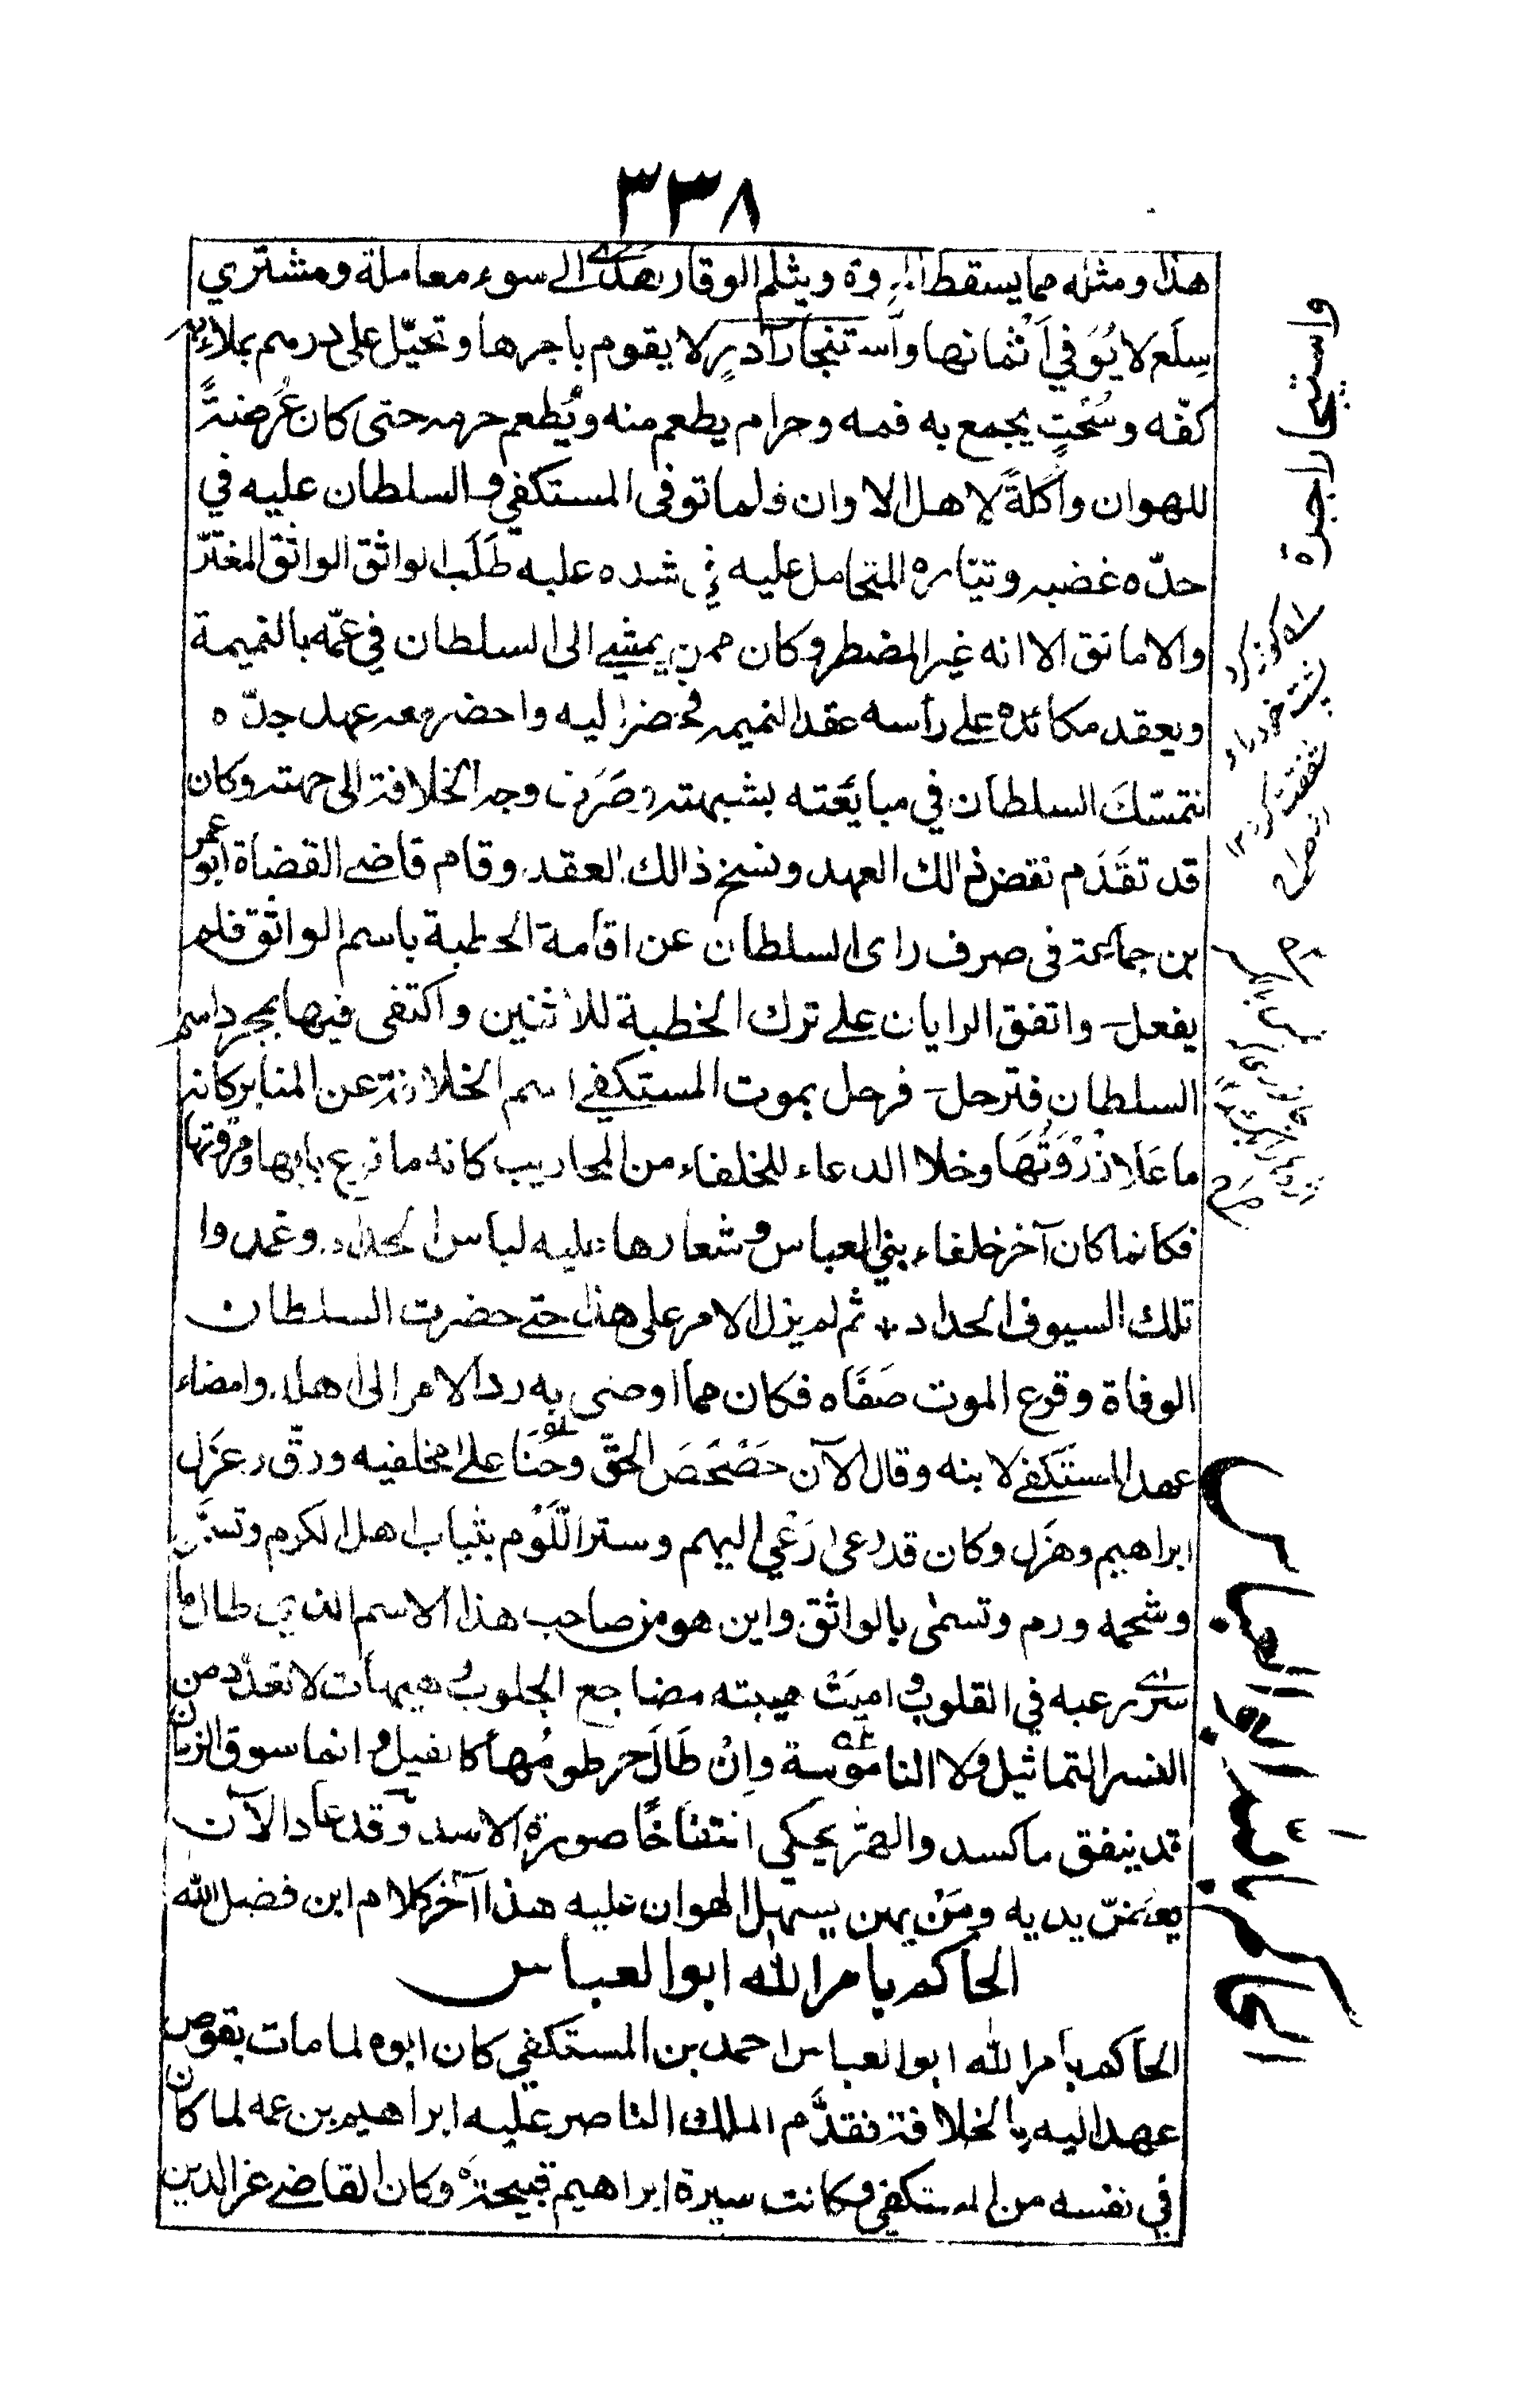 ٣٣٨
هذا ومثله مما يسقط المروة ويثلم الوقار هذا الى سوء معاملة ومشتري
سِلَع لا يُوَفي أثمانها واستئجار آدر لا يقوم باجرها وتحيّل على درهم يملاء به
كفّه وسُحْتٍ يجمع به فمه وحرام يطعم منه ويُطعم حرمه حتى كان عُرضةً
للهوان وأكلةً لاهل الاوان فلما توفى المستكفي والسلطان عليه في
حدّه غضبه وتيّاره المتحامل عليه في شده غلبه طَلَب الواثق الواثق المغترّ
والامائق الا انه غير المضطر وكان ممن يمشي الى السلطان في عمّه بالنميمة
ويعقد مكائده على رأسه عقد التميمه فحضر اليه واحضر معه عهد جدّه
فتمسّك السلطان في مبايعته بشبهته وصَرَف وجه الخلافة الى جهته وكان
قد تقَدَم نقض ذالك العهد ونسخ ذالك العقد وقام قاضي القضاة ابو عمر
بن جماعة فى صرف راى السلطان عن اقامة الخطبة باسم الواثق فلم
يفعل واتفق الرايان على ترك الخطبة للاثنين واكتفى فيها بمجرد اسم
السلطان فترحل فرحل بموت المستكفي اسم الخلافة عن المنابر كانه
ما عَلا ذُرْوَتُهَا وخلا الدعاء للخلفاء من المحاريب كانه ما قرع بابها ومروتها
فكانما كان آخر خلفاء بني العباس وشعارها عليه لباس الحداد وغمدوا
تلك السيوف الحداد ثم لم يزل الامر على هذا حتى حضرت السلطان
الوفاة وقرع الموت صَفَاه فكان مما اوصى به رد الامر الى اهله وامضاء
عهد المستكفي لابنه وقال الآن حَصْحَصَ الحقّ وحَنَا على مخلفيه ورقّ وعزل
ابراهيم وهزل وكان قد رعى رَعْي البهم وستر اللّؤم بثياب اهل الكرم وتسمَّن
وشحمه ورم وتسمى بالواثق واين هو من صاحب هذا الاسم الذي طال ما
سرى رعبه في القلوب و هيبته مضاجع الجلوب هيهات لا تعدّ من
النسر التماثيل ولا الناموسة وإنْ طَالَ خرطومُها كالفيل وانما سوق الزمان
قد ينفق ما كسد والهرّ يحكي انتفاخًا صورة الاسد وقد عاد الآن
يعَضّ يديه ومَنْ يهن يسهل الهوان عليه هذا آخر كلام ابن فضل الله
الحاكم بامر الله ابو العباس
الحاكم بامر الله ابو العباس احمد بن المستكفي كان ابوه لما مات بقوص
عهد اليه بالخلافة فقدَّم الملك الناصر عليه ابراهيم بن عمه لما كان
في نفسه من المستكفي وكانت سيرة ابراهيم قبيحة وكان القاضي عز الدين
واستيجار اجرة
الحاكم بامر الله ابو العباس